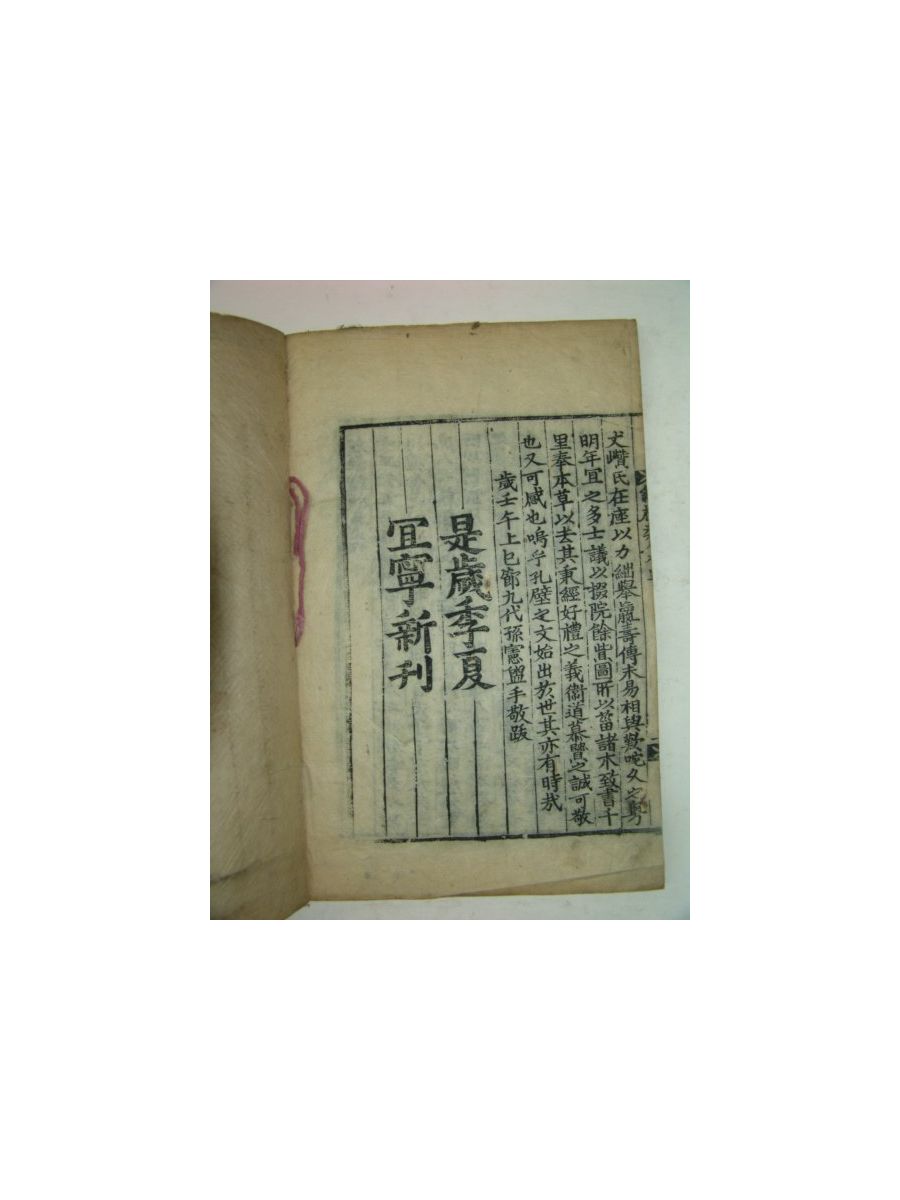 丈巑氏在座以力絀舉羸壽傳未易相與歎咤久之
明年宜之多士議以掇院餘貲圖所以當諸木致書千
里奉本草以去其秉經好禮之義衛道慕賢之誠可敬
也又可感也嗚乎孔壁之文始出於世其亦有時哉
歲壬午上巳節九代孫憲盥手敬跋
是歲季夏
宜寧新刊